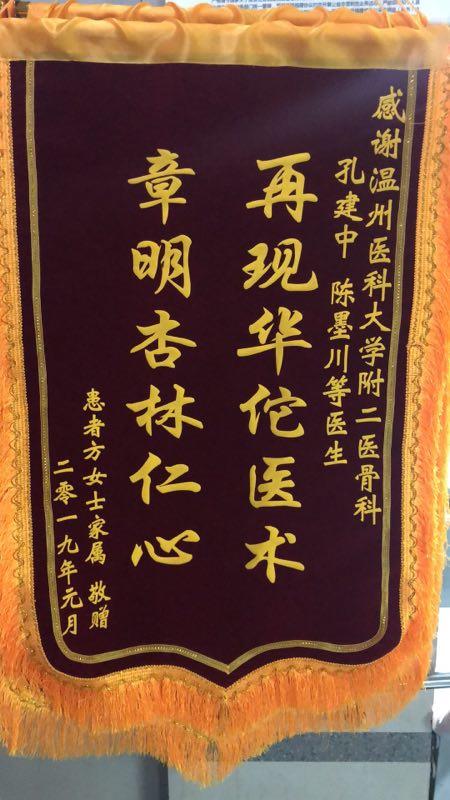 感谢温州医科大学附二医骨科
孔建中 陈墨川等医生
再现华佗医术
章明杏林仁心
患者方女士家属 敬赠
二零一九年元月